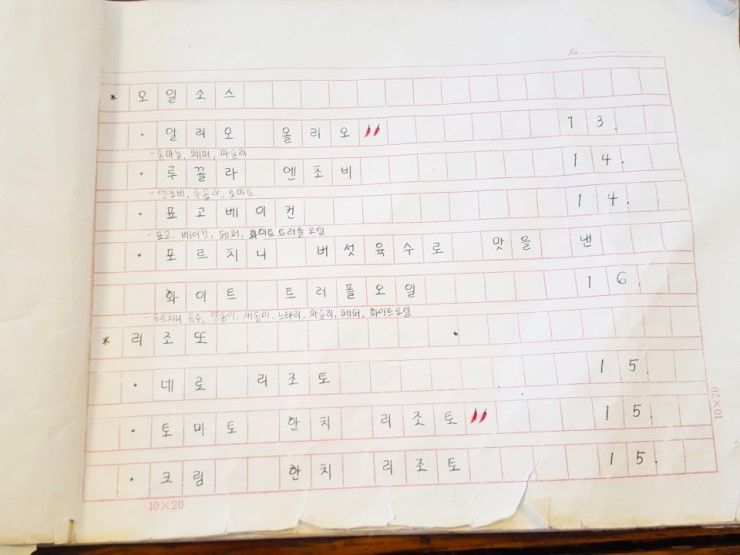 No
* 오일소스
· 알리오 올리오 13.
- 통마늘, 페퍼, 파슬리
· 루꼴라 엔초비 14.
- 엔초비, 루꼴라, 토마토
· 표고베이컨 14.
- 표고, 베이컨, 페퍼, 화이트트러플오일
· 포르치니 버섯육수로 맛을 낸
화이트 트러플오일 16.
- 포르치니 육수, 양송이, 새송이, 느타리, 파슬리, 페퍼, 화이트오일
* 리조또
· 네로 리조토 15.
· 토미토 한치 리조토 15.
· 크림 한치 리조토 15.
10×20
10×20